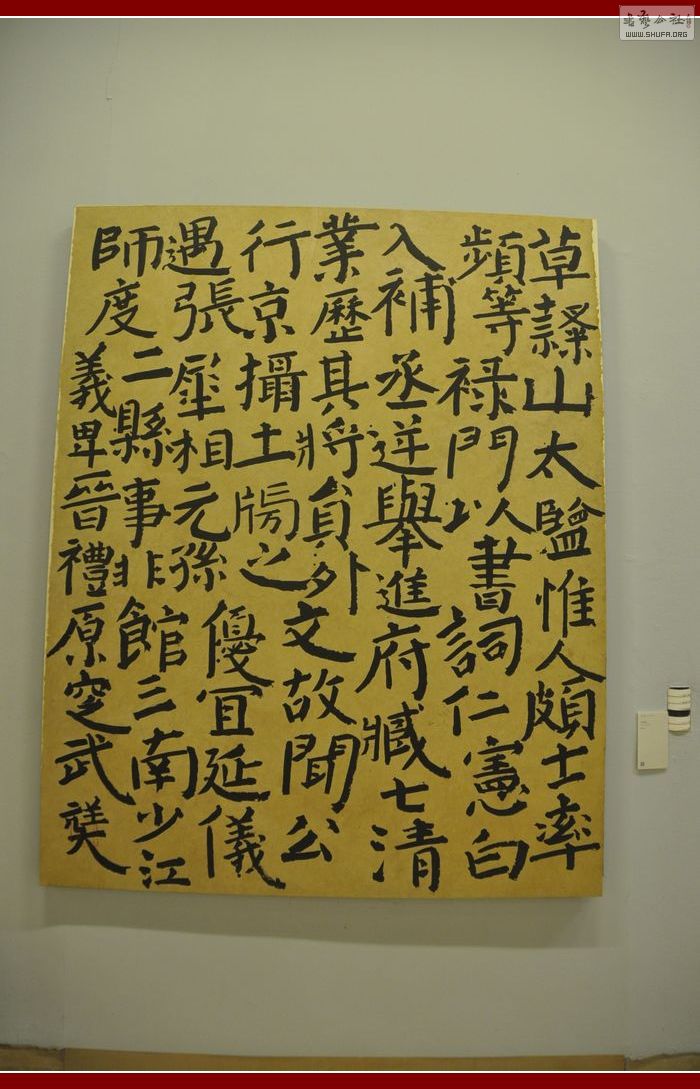 草隸山太鹽惟人頗士率
頻等祿門以書詞仁憲白
入補丞逆舉進府臧七清
業歷其將員外文故聞公
行京攝土牓之
遇張犀相元孫優宜延儀
師度二縣事非館三南少江
義卑晉禮原空武
WWW.SHUFA.ORG